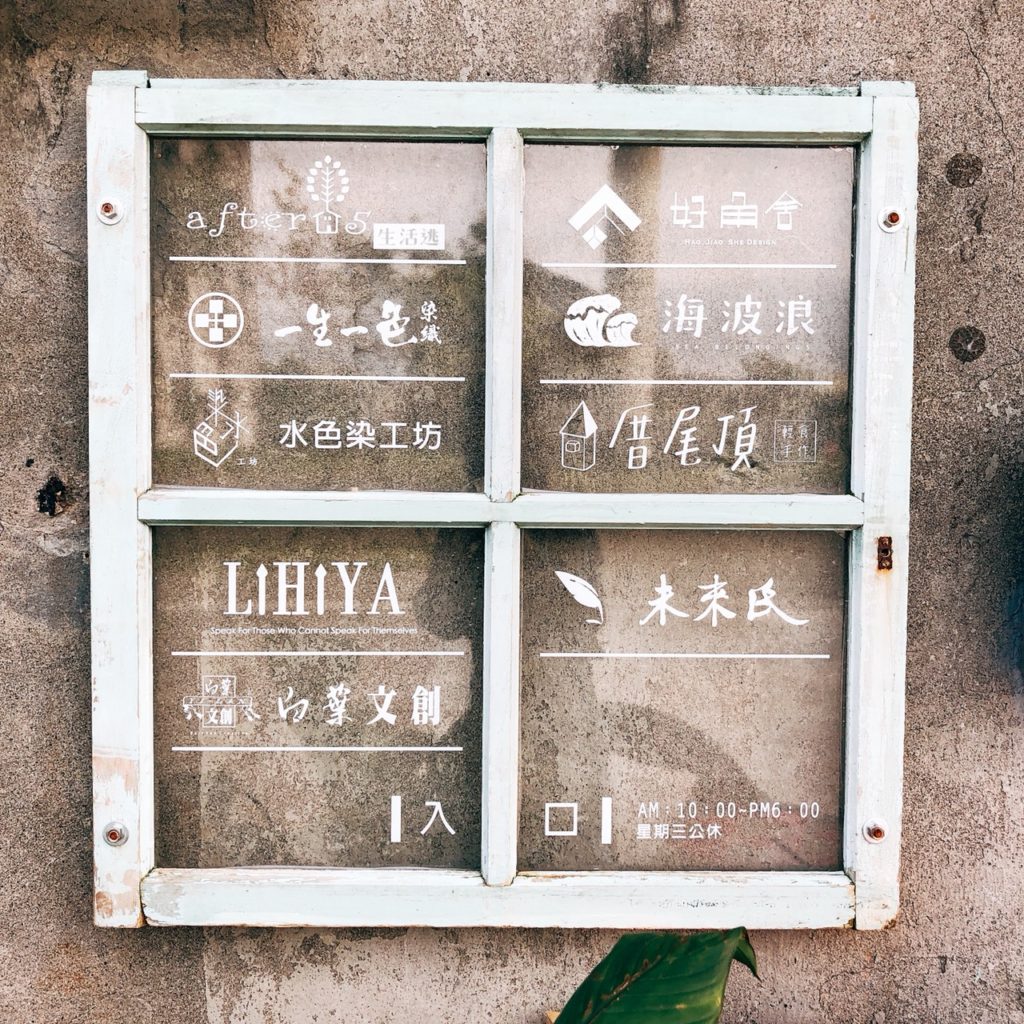 after 05
生活逃
一生一色
染織
水色染工坊
工坊
LIHIYA
Speak For Those Who Cannot Speak For Themselves
白葉
文創
白葉文創
入
好角舍
HAO JIAO SHE DESIGN
海波浪
SEA BELONGINGS
厝尾頂
未來氏
口
AM:10:00-PM6:00
星期三公休